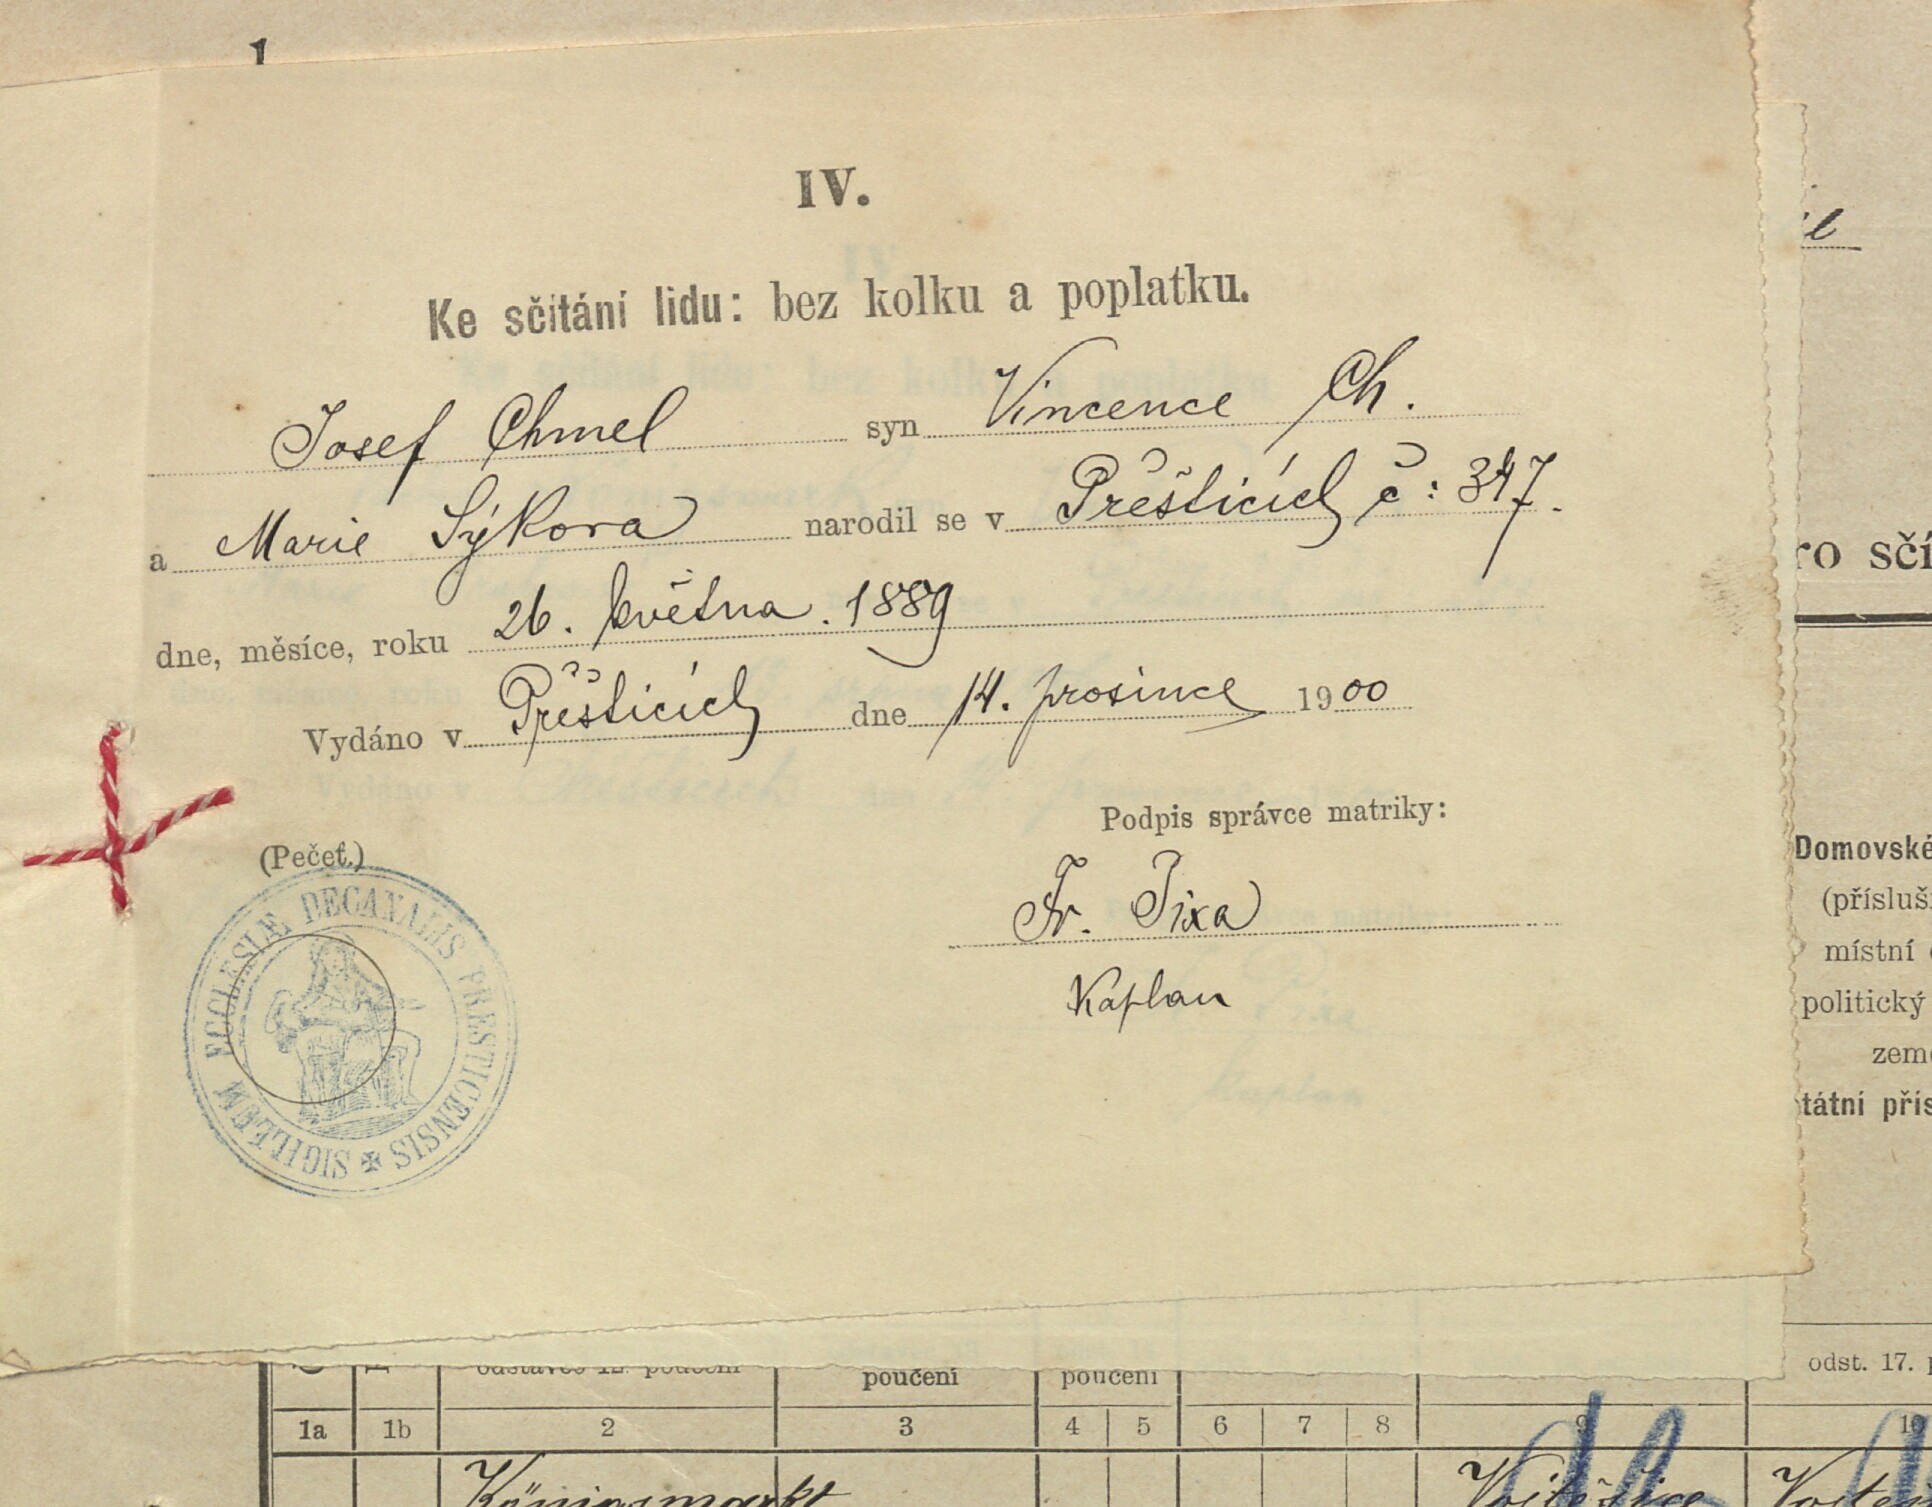 1
IV.
Ke sčítání lidu: bez kolku a poplatku.
Josef Chmel syn Vincence Ch.
a Marie Sýkora narodil se v Přešticích č: 347.
dne, měsíce, roku 26. května. 1889
Vydáno v Přešticích dne 14. prosince 1900
Podpis správce matriky:
(Pečeť.)
Fr. Pixa
Kaplan
SIGILLUM ECCLESIÆ DECANALIS PRESTICENSIS
ro sčí
Domovské
(přísluš
místní
politický
země
tátní přís
odstavce 12. poučení
poučení
poučení
odst. 17.
1a 1b 2 3 4 5 6 7 8 9 10
Königsmarkt